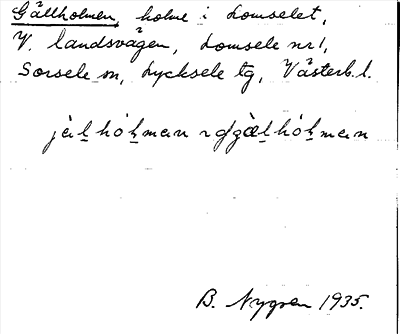 Gällholmen, holme i Lomselet,
V. landsvägen, Lomsele nr 1,
Sorsele sn, Lycksele tg, Västerb. l.
B. Nygren 1935.